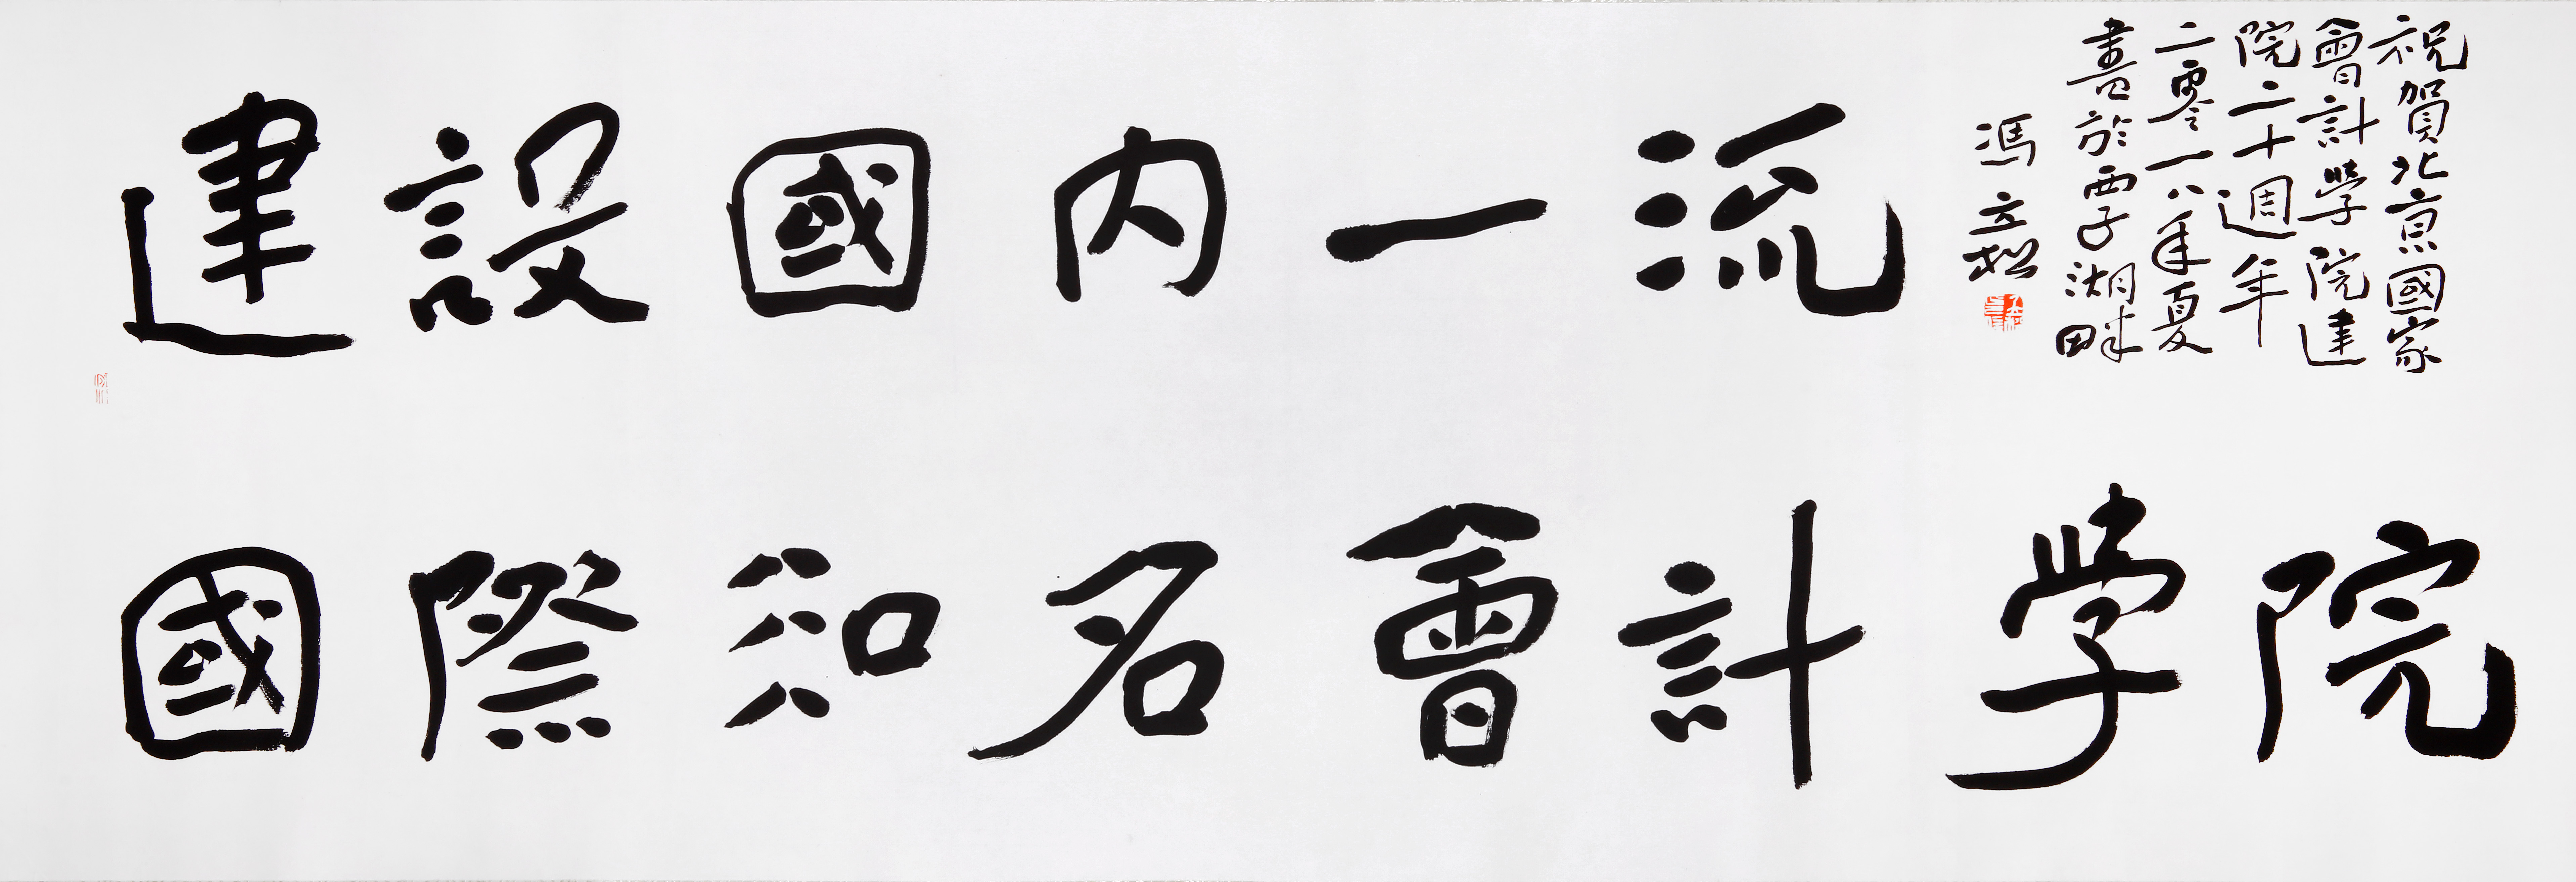 建設國內一流
國際知名會計學院
祝賀北京國家
會計學院建
院二十週年
二零一八年夏
書於西子湖畔
馮立松